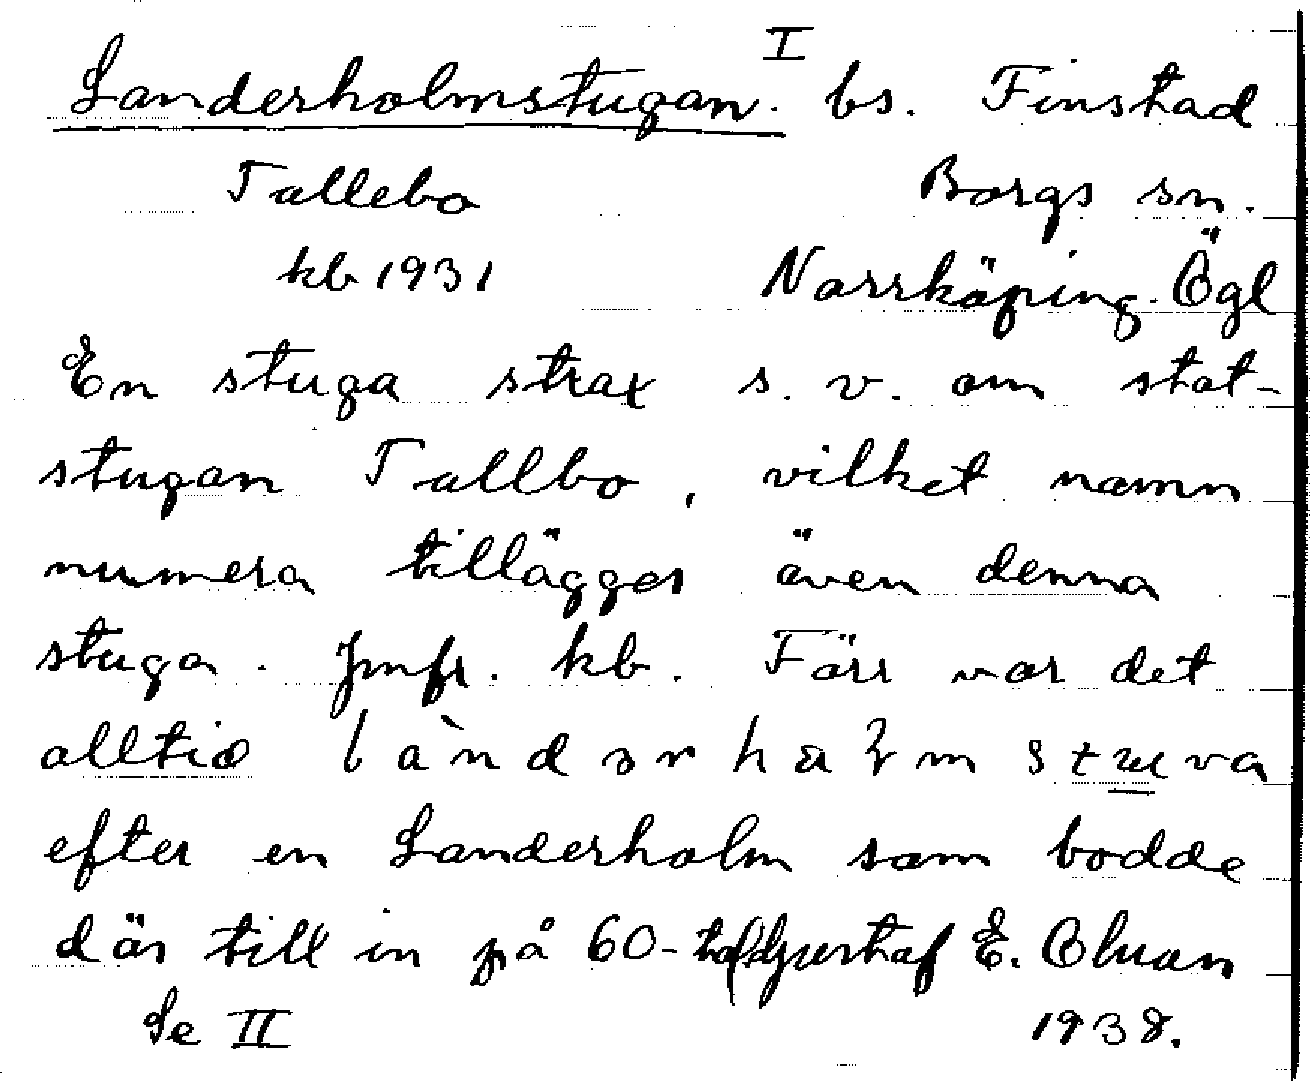 I
Landerholmstugan. bs. Finstad
Tallebo Borgs sn.
kb 1931 Norrköping. Ögl
En stuga strax s. v. om stat-
stugan Tallbo, vilket namn
numera tillägges även denna
stuga. Jmfr. kb. Förr var det
alltid
efter en Landerholm som bodde
där till in på 60-tal Gustaf E. Ohman
Se II 1938.